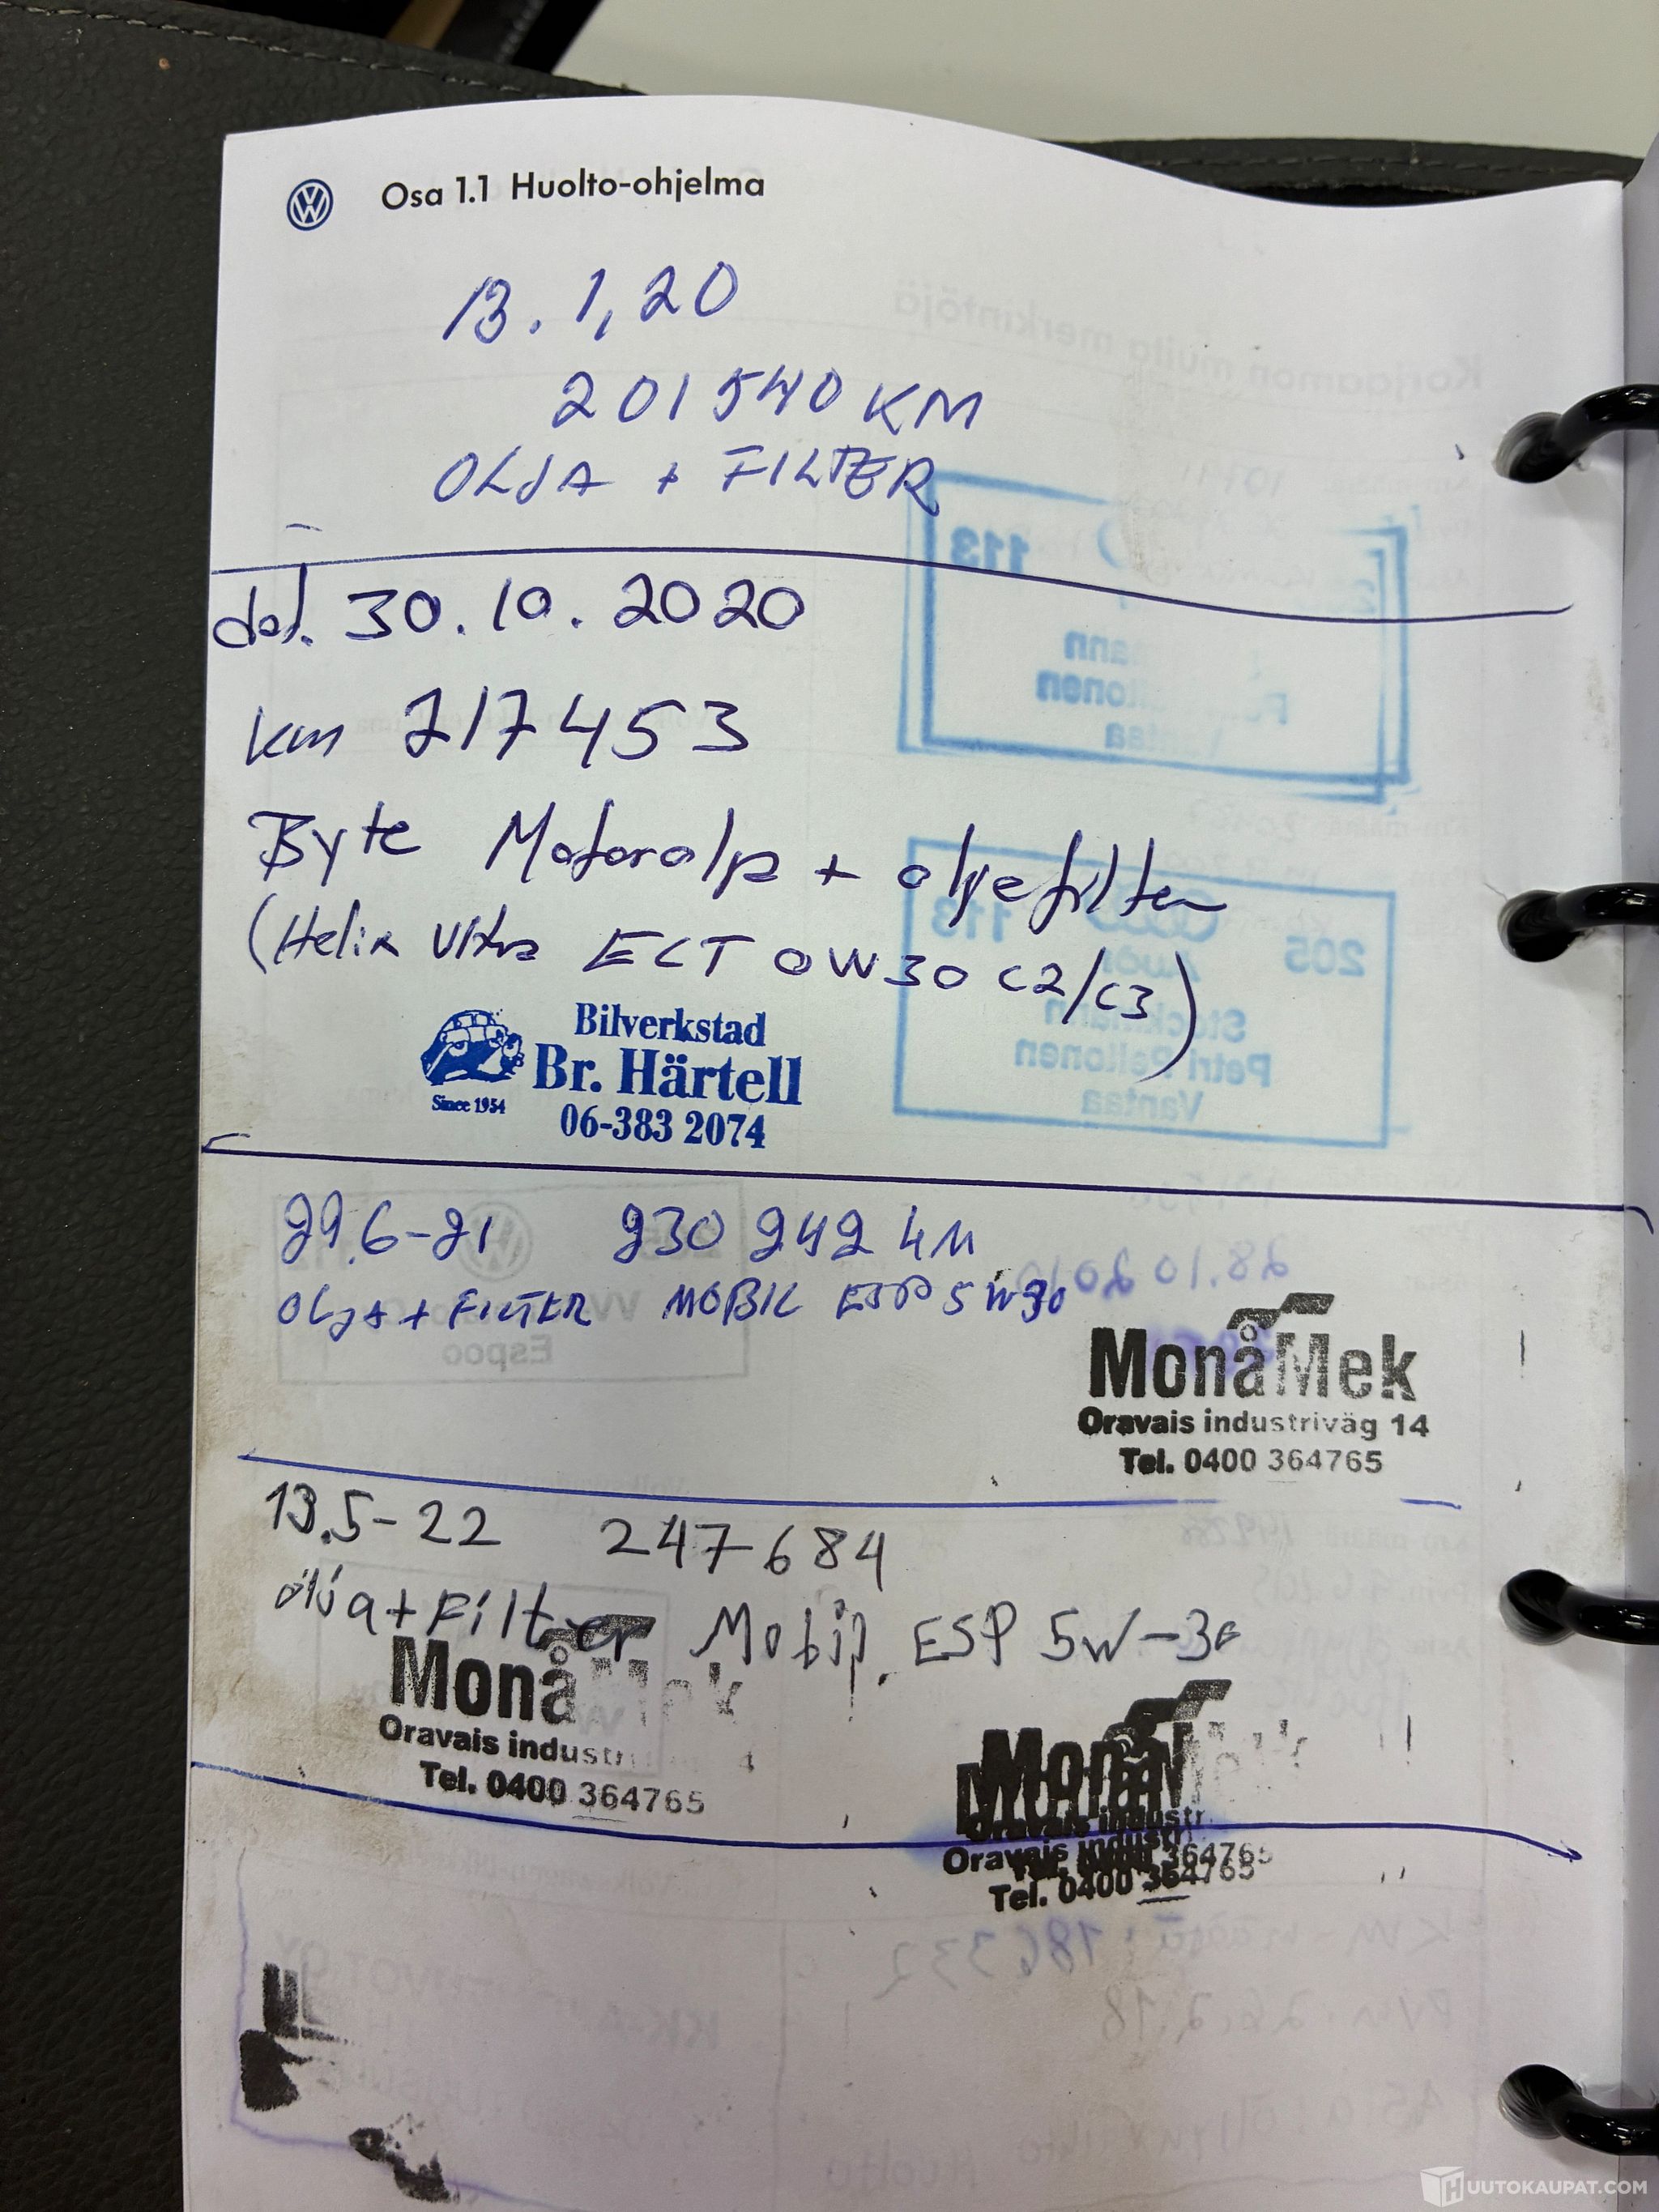 Osa 1.1 Huolto-ohjelma
13.1,20
201540 KM
OLJA + FILTER
dat. 30.10.2020
km 217453
Byte Motorolja + oljefilter
(Helix Ultra ECT 0W30 C2/C3)
Bilverkstad
Br. Härtell
Since 1954
06-383 2074
29.6-21 230 242 KM
OLJA + FILTER MOBIL ESP 5W30
MonåMek
Oravais industriväg 14
Tel. 0400 364765
13.5-22 247684
olja+Filter Mobil ESP 5W-30
MonåMek
Oravais industri
Tel. 0400 364765
Monå
Oravais industr
Tel. 0400 364765
HUUTOKAUPAT.COM